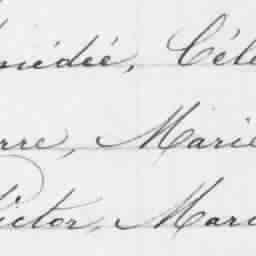 médée, Cél
erre, Marie
Victor, Mari